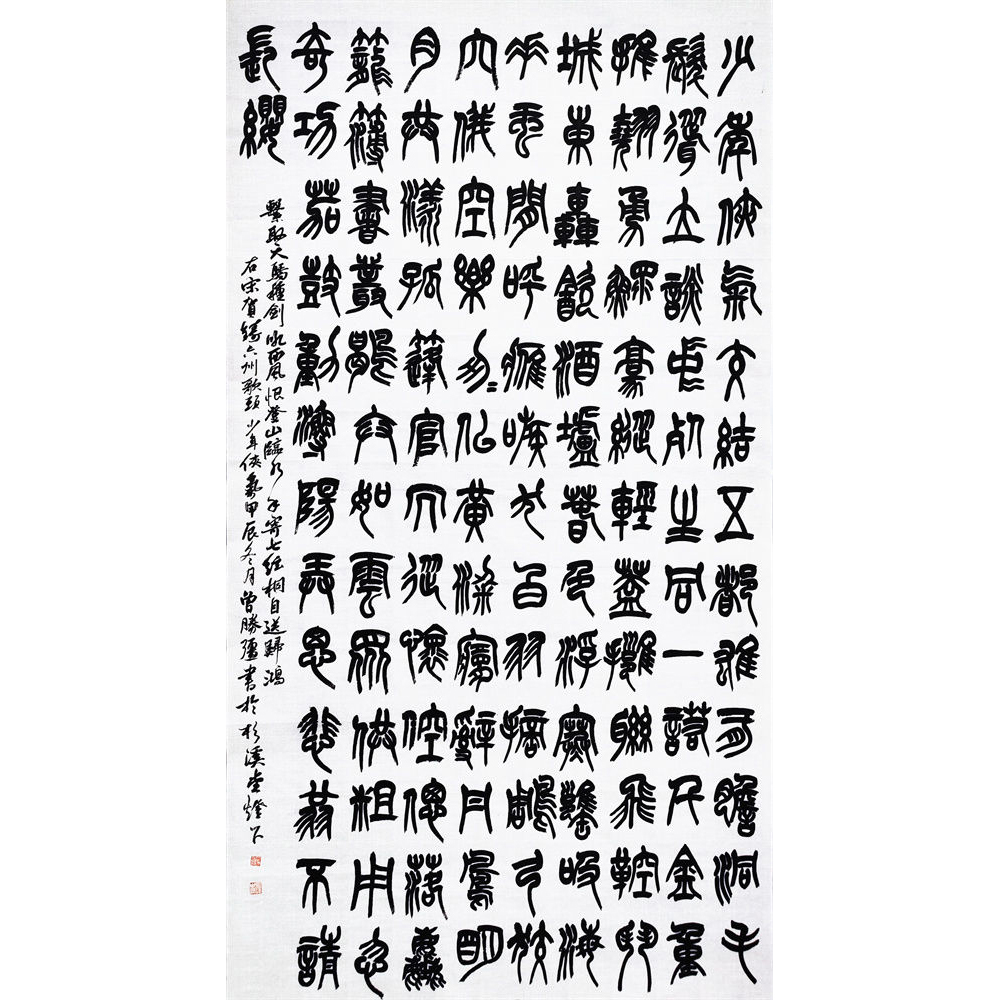 少年俠氣交結五都雄肝膽洞毛
髮聳立談中死生同一諾千金重
推翹勇矜豪縱輕蓋擁聯飛鞚鬥
城東轟飲酒壚春色浮寒甕吸海
垂虹閒呼鷹嗾犬白羽摘雕弓狡
穴俄空樂匆〻似黃粱夢辭丹鳳明
月共漾孤篷官冗從懷倥傯落塵
籠簿書叢鶡弁如雲眾供粗用忽
奇功笳鼓動漁陽弄思悲翁不請
長纓
繫取天驕種劍吼西風恨登山臨水手寄七弦桐目送歸鴻
右宋賀鑄六州歌頭少年俠氣甲辰冬月曾勝彊書於杉溪堂燈下